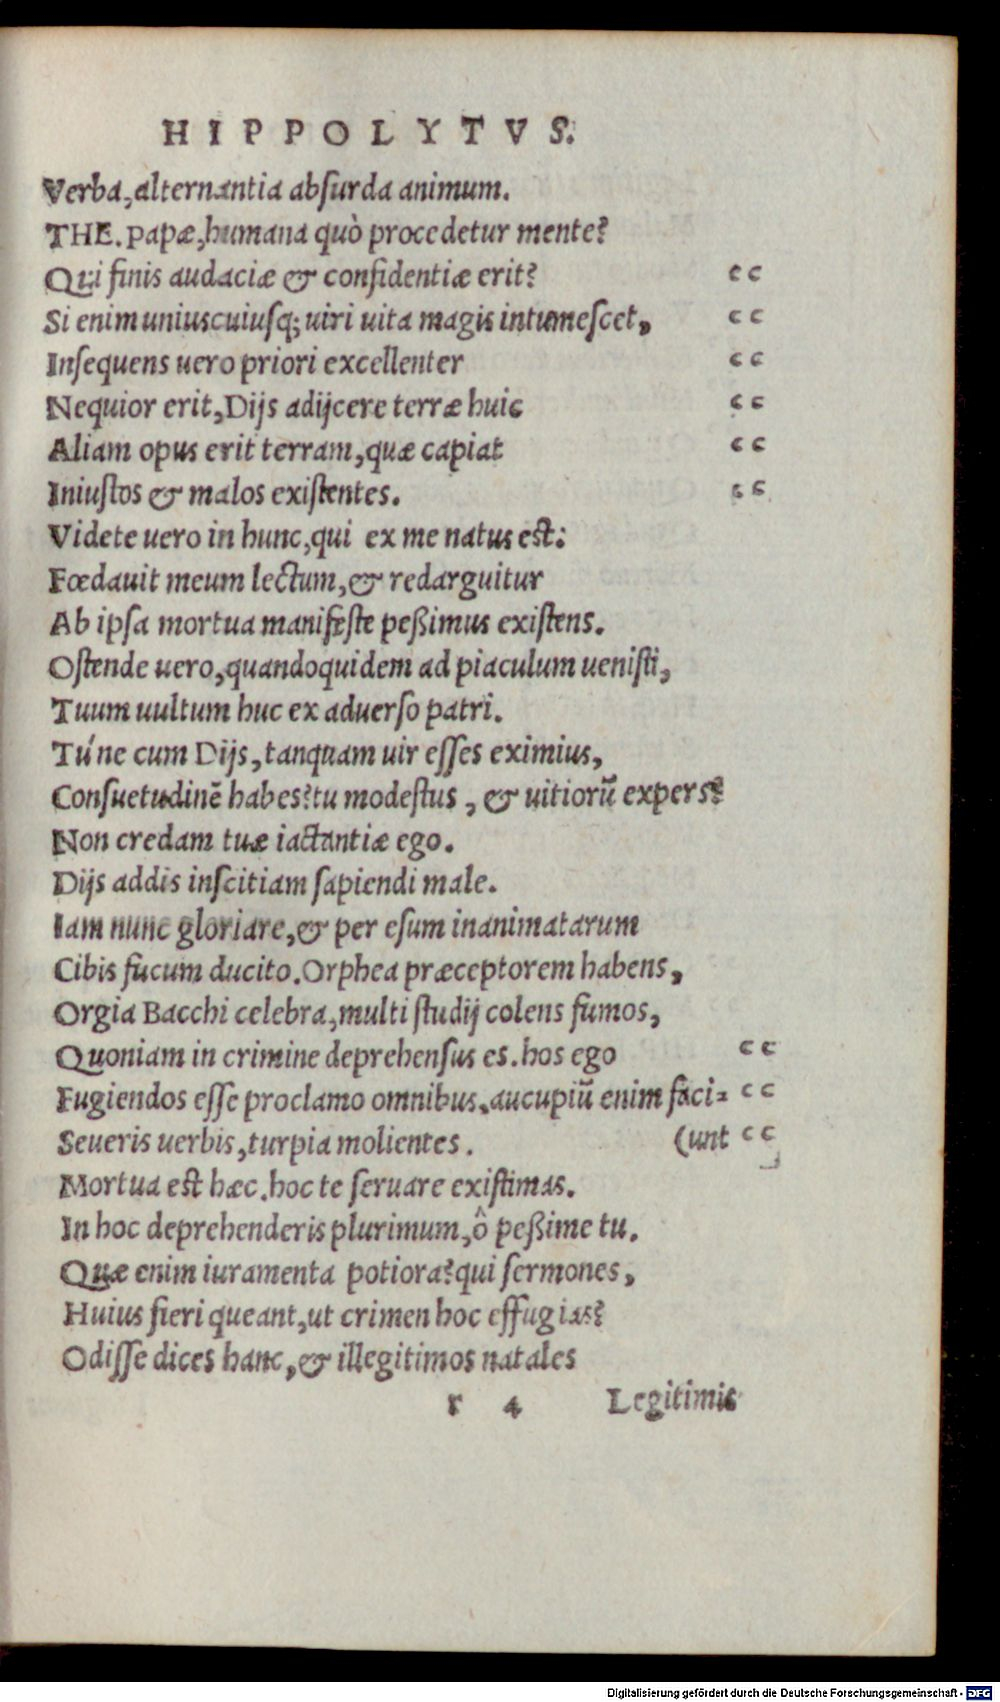 HIPPOLYTVS.
Verba, alternantia absurda animum.
THE. Papæ, humana quò procedetur mente?
Qui finis audaciæ & confidentiæ erit? cc
Si enim uniuscuiusq; uiri uita magis intumescet, cc
Insequens uero priori excellenter cc
Nequior erit, Dijs adijcere terræ huic cc
Aliam opus erit terram, quæ capiat cc
Iniustos & malos existentes. cc
Videte uero in hunc, qui ex me natus est:
Fœdauit meum lectum, & redarguitur
Ab ipsa mortua manifeste peßimus existens.
Ostende uero, quandoquidem ad piaculum uenisti,
Tuum uultum huc ex aduerso patri.
Tú ne cum Dijs, tanquam uir esses eximius,
Consuetudinē habes? tu modestus, & uitiorū expers?
Non credam tuæ iactantiæ ego.
Dijs addis inscitiam sapiendi male.
Iam nunc gloriare, & per esum inanimatarum
Cibis fucum ducito. Orphea præceptorem habens,
Orgia Bacchi celebra, multi studij colens fumos,
Quoniam in crimine deprehensus es. hos ego cc
Fugiendos esse proclamo omnibus. aucupiū enim faci- cc
Seueris uerbis, turpia molientes. (unt cc
Mortua est hæc. hoc te seruare existimas.
In hoc deprehenderis plurimum, ô peßime tu.
Quæ enim iuramenta potiora? qui sermones,
Huius fieri queant, ut crimen hoc effugias?
Odisse dices hanc, & illegitimos natales
r 4 Legitimis
Digitalisierung gefördert durch die Deutsche Forschungsgemeinschaft - DFG